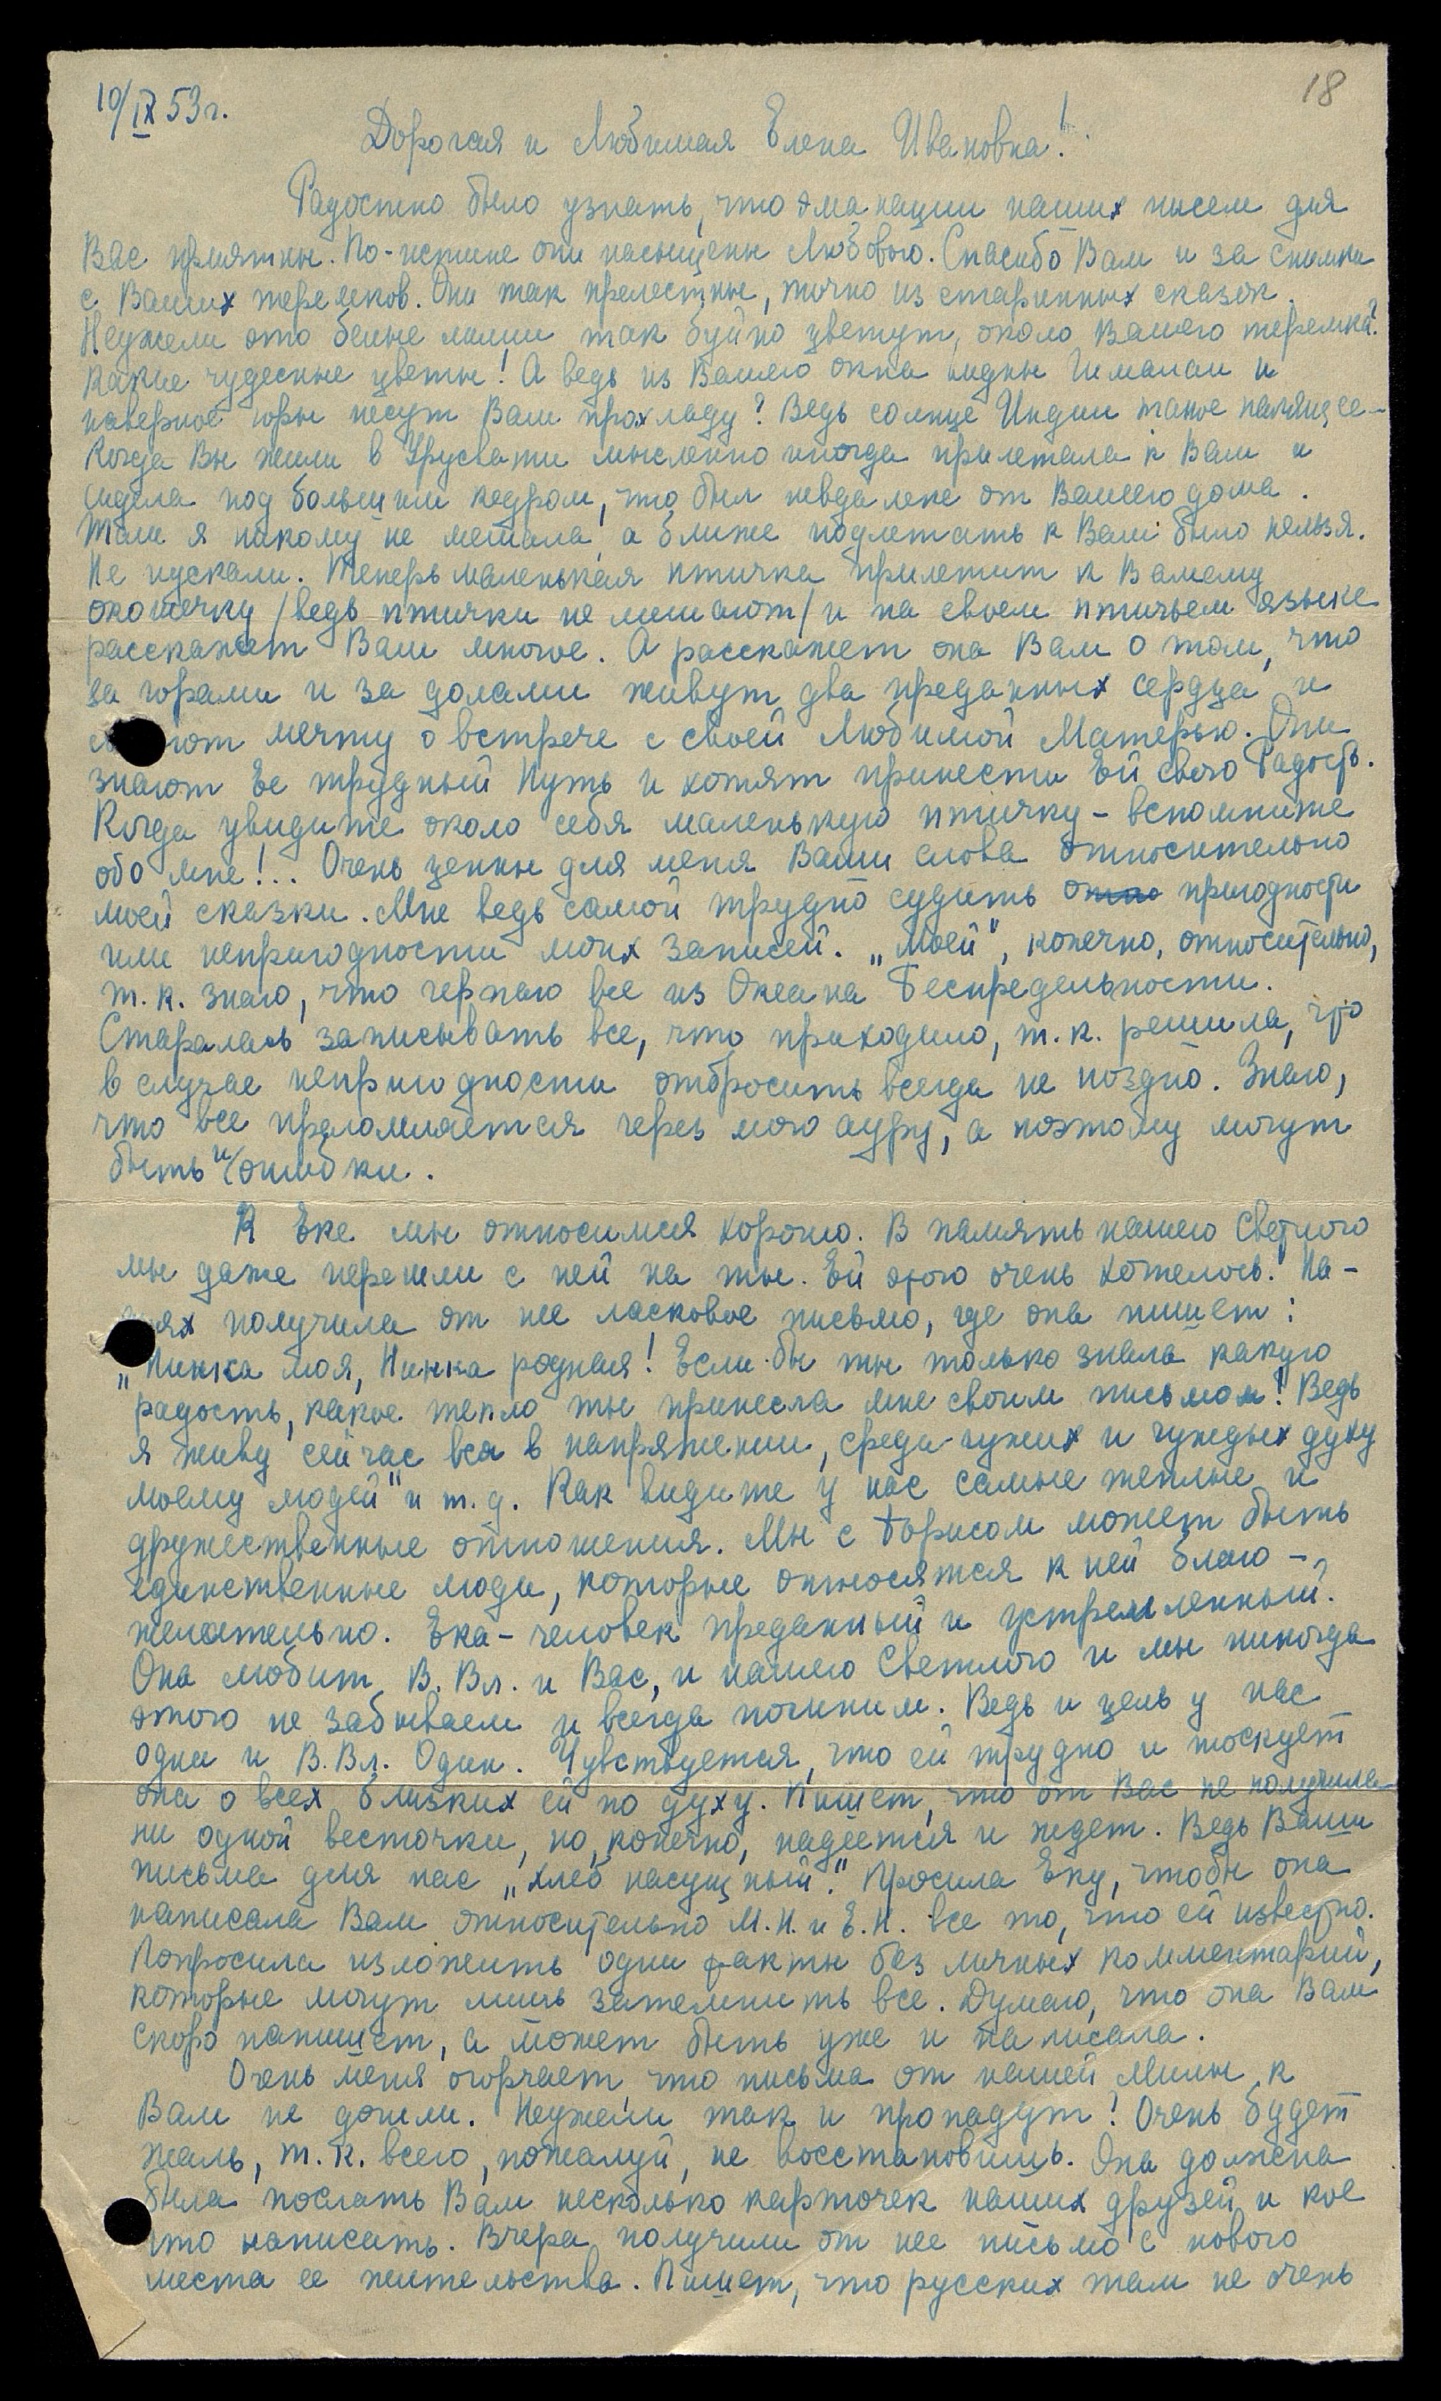 10/IX 53 г.
18
Дорогая и Любимая Елена Ивановна!
Радостно было узнать, что эманации наших писем для
Вас приятны. По-истине они насыщены Любовью. Спасибо Вам и за снимки
с Ваших теремков. Они так прелестны, точно из старинных сказок.
Неужели это белые лилии так буйно цветут, около Вашего теремка?
Какие чудесные цветы! А ведь из Вашего окна видны Гималаи и
наверное горы несут Вам прохладу? Ведь солнце Индии такое палящее –
Когда Вы жили в Урусвати мысленно иногда прилетала к Вам и
сидела под большим кедром, что был невдалеке от Вашего дома.
Там я никому не мешала, а ближе подлетать к Вам было нельзя.
Не пускали. Теперь маленькая птичка прилетит к Вашему
окошечку /ведь птички не мешают/ и на своем птичьем языке
расскажет Вам многое. А расскажет она Вам о том, что
за горами и за долами живут два преданных сердца и
мечту о встрече с своей Любимой Матерью. Они
знают Ее трудный Путь и хотят принести Ей свою Радость.
Когда увидите около себя маленькую птичку – вспомните
обо мне!.. Очень ценны для меня Ваши слова относительно
моей сказки. Мне ведь самой трудно судить о пригодности
или непригодности моих записей. „Моей", конечно, относительно,
т. к. знаю, что черпаю все из Океана Беспредельности.
Старалась записывать все, что приходило, т. к. решила, что
в случае непригодности отбросить всегда не поздно. Знаю,
что все преломляется через мою ауру, а поэтому могут
быть и ошибки.
К Еке мы относимся хорошо. В память нашего Светлого
мы даже перешли с ней на ты. Ей этого очень хотелось. На-
днях получила от нее ласковое письмо, где она пишет:
„Нинка моя, Нинка родная! Если бы ты только знала какую
радость, какое тепло ты принесла мне своим письмом! Ведь
я живу сейчас вся в напряжении, среди чужих и чуждых духу
моему людей" и т. д. Как видите у нас самые теплые и
дружественные отношения. Мы с Борисом может быть
единственные люди, которые относятся к ней благо-
желательно. Ека – человек преданный и устремленный.
Она любит В. Вл. и Вас, и нашего Светлого и мы никогда
этого не забываем и всегда помним. Ведь и цель у нас
одна и В. Вл. Один. Чувствуется, что ей трудно и тоскует
она о всех близких ей по духу. Пишет, что от Вас не получила
ни одной весточки, но, конечно, надеется и ждет. Ведь Ваши
письма для нас „хлеб насущный". Просила Еку, чтобы она
написала Вам относительно М. Н. и Е. Н. все то, что ей известно.
Попросила изложить одни факты без личных комментарий,
которые могут лишь затемнить все. Думаю, что она Вам
скоро напишет, а может быть уже и написала.
Очень меня огорчает что письма от нашей Милы к
Вам не дошли. Неужели так и пропадут! Очень будет
жаль, т. к. всего, пожалуй, не восстановишь. Она должна
была послать Вам несколько карточек наших друзей и кое
что написать. Вчера получили от нее письмо с нового
места ее жительства. Пишет, что русских там не очень